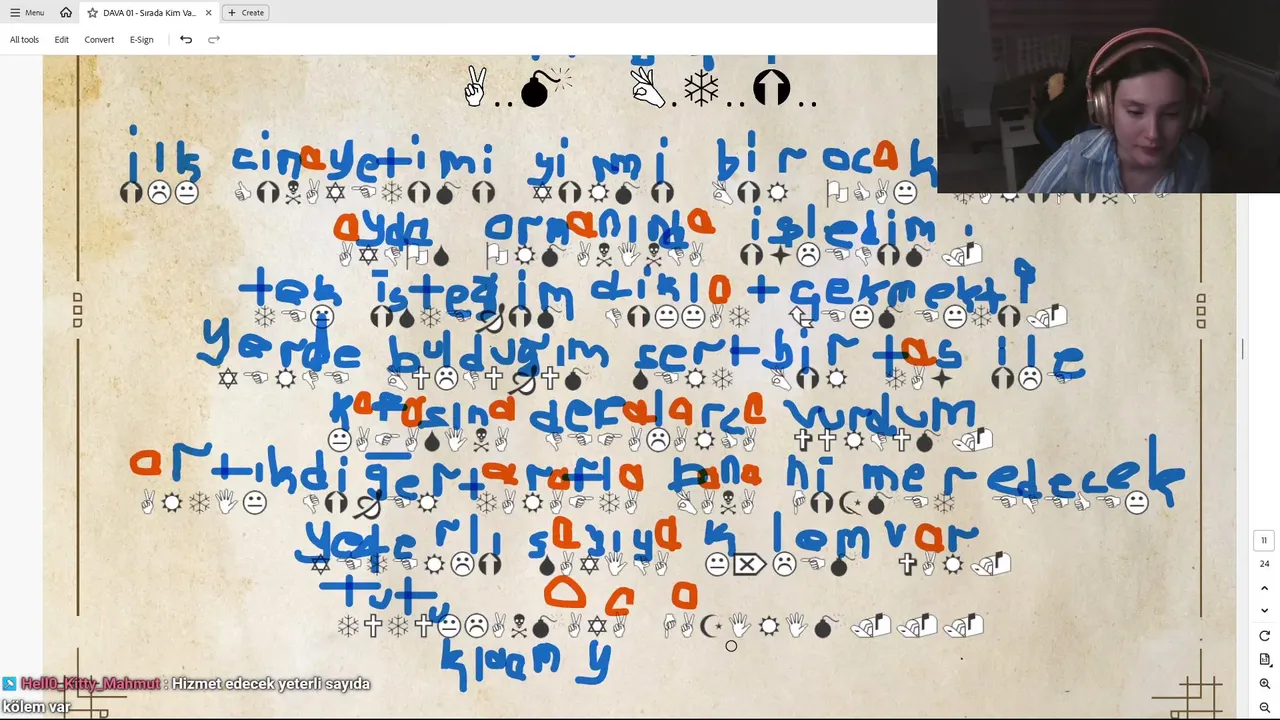 Menu
DAVA 01 - Sırada Kim Va... × + Create
All tools Edit Convert E-Sign
ilk cinayetimi yi rmi bir ocak
ayda ormanında işledim .
tek isteğim dikkat çekmekti
yerde bulduğım sert bir tas ile
kafasına defalarca vurdum
artık diğer tararla bana hi mer edecek
yete rli sayıya k lem var
tutu
11
24
Hell0_Kitty_Mahmut : Hizmet edecek yeterli sayıda
kölem var